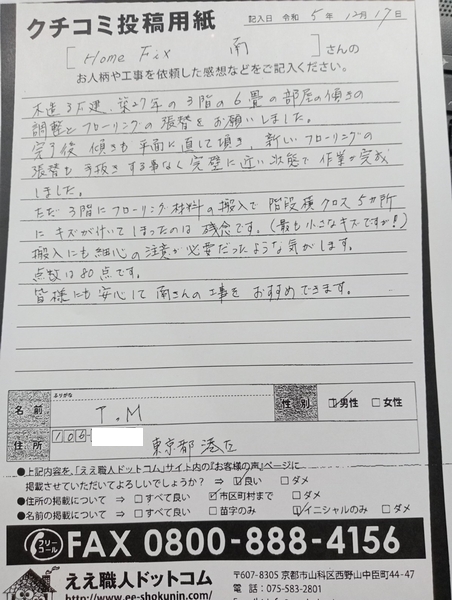 クチコミ投稿用紙
記入日 令和 5年 12月 17日
[ Home Fix 南 ]さんの
お人柄や工事を依頼した感想などをご記入ください。
木造3F建、築27年の3階の6畳の部屋の傾きの
調整とフローリングの張替をお願いしました。
完了後傾きも平面に直して頂き、新しいフローリングの
張替も手抜きする事なく完璧に近い状態で作業が完成
しました。
ただ3階にフローリング材料の搬入で階段横クロス5カ所
にキズが付いてしまったのは残念です。(最も小さなキズですが!)
搬入にも細心の注意が必要だったような気がします。
点数は80点です。
皆様にも安心して南さんの工事をおすすめできます。
ふりがな
名前 T.M 性別 ☑男性 □女性
住所 106- 東京都港区
●上記内容を、「ええ職人ドットコム」サイト内の『お客様の声』ページに
掲載させていただいてよろしいでしょうか? ⇒ ☑良い □ダメ
●住所の掲載について ⇒ □すべて良い ☑市区町村まで □ダメ
●名前の掲載について ⇒ □すべて良い □苗字のみ ☑イニシャルのみ □ダメ
フリーコール FAX 0800-888-4156
ええ職人ドットコム
http://www.ee-shokunin.com/
〒607-8305 京都市山科区西野山中臣町44-47
電話:075-583-2801